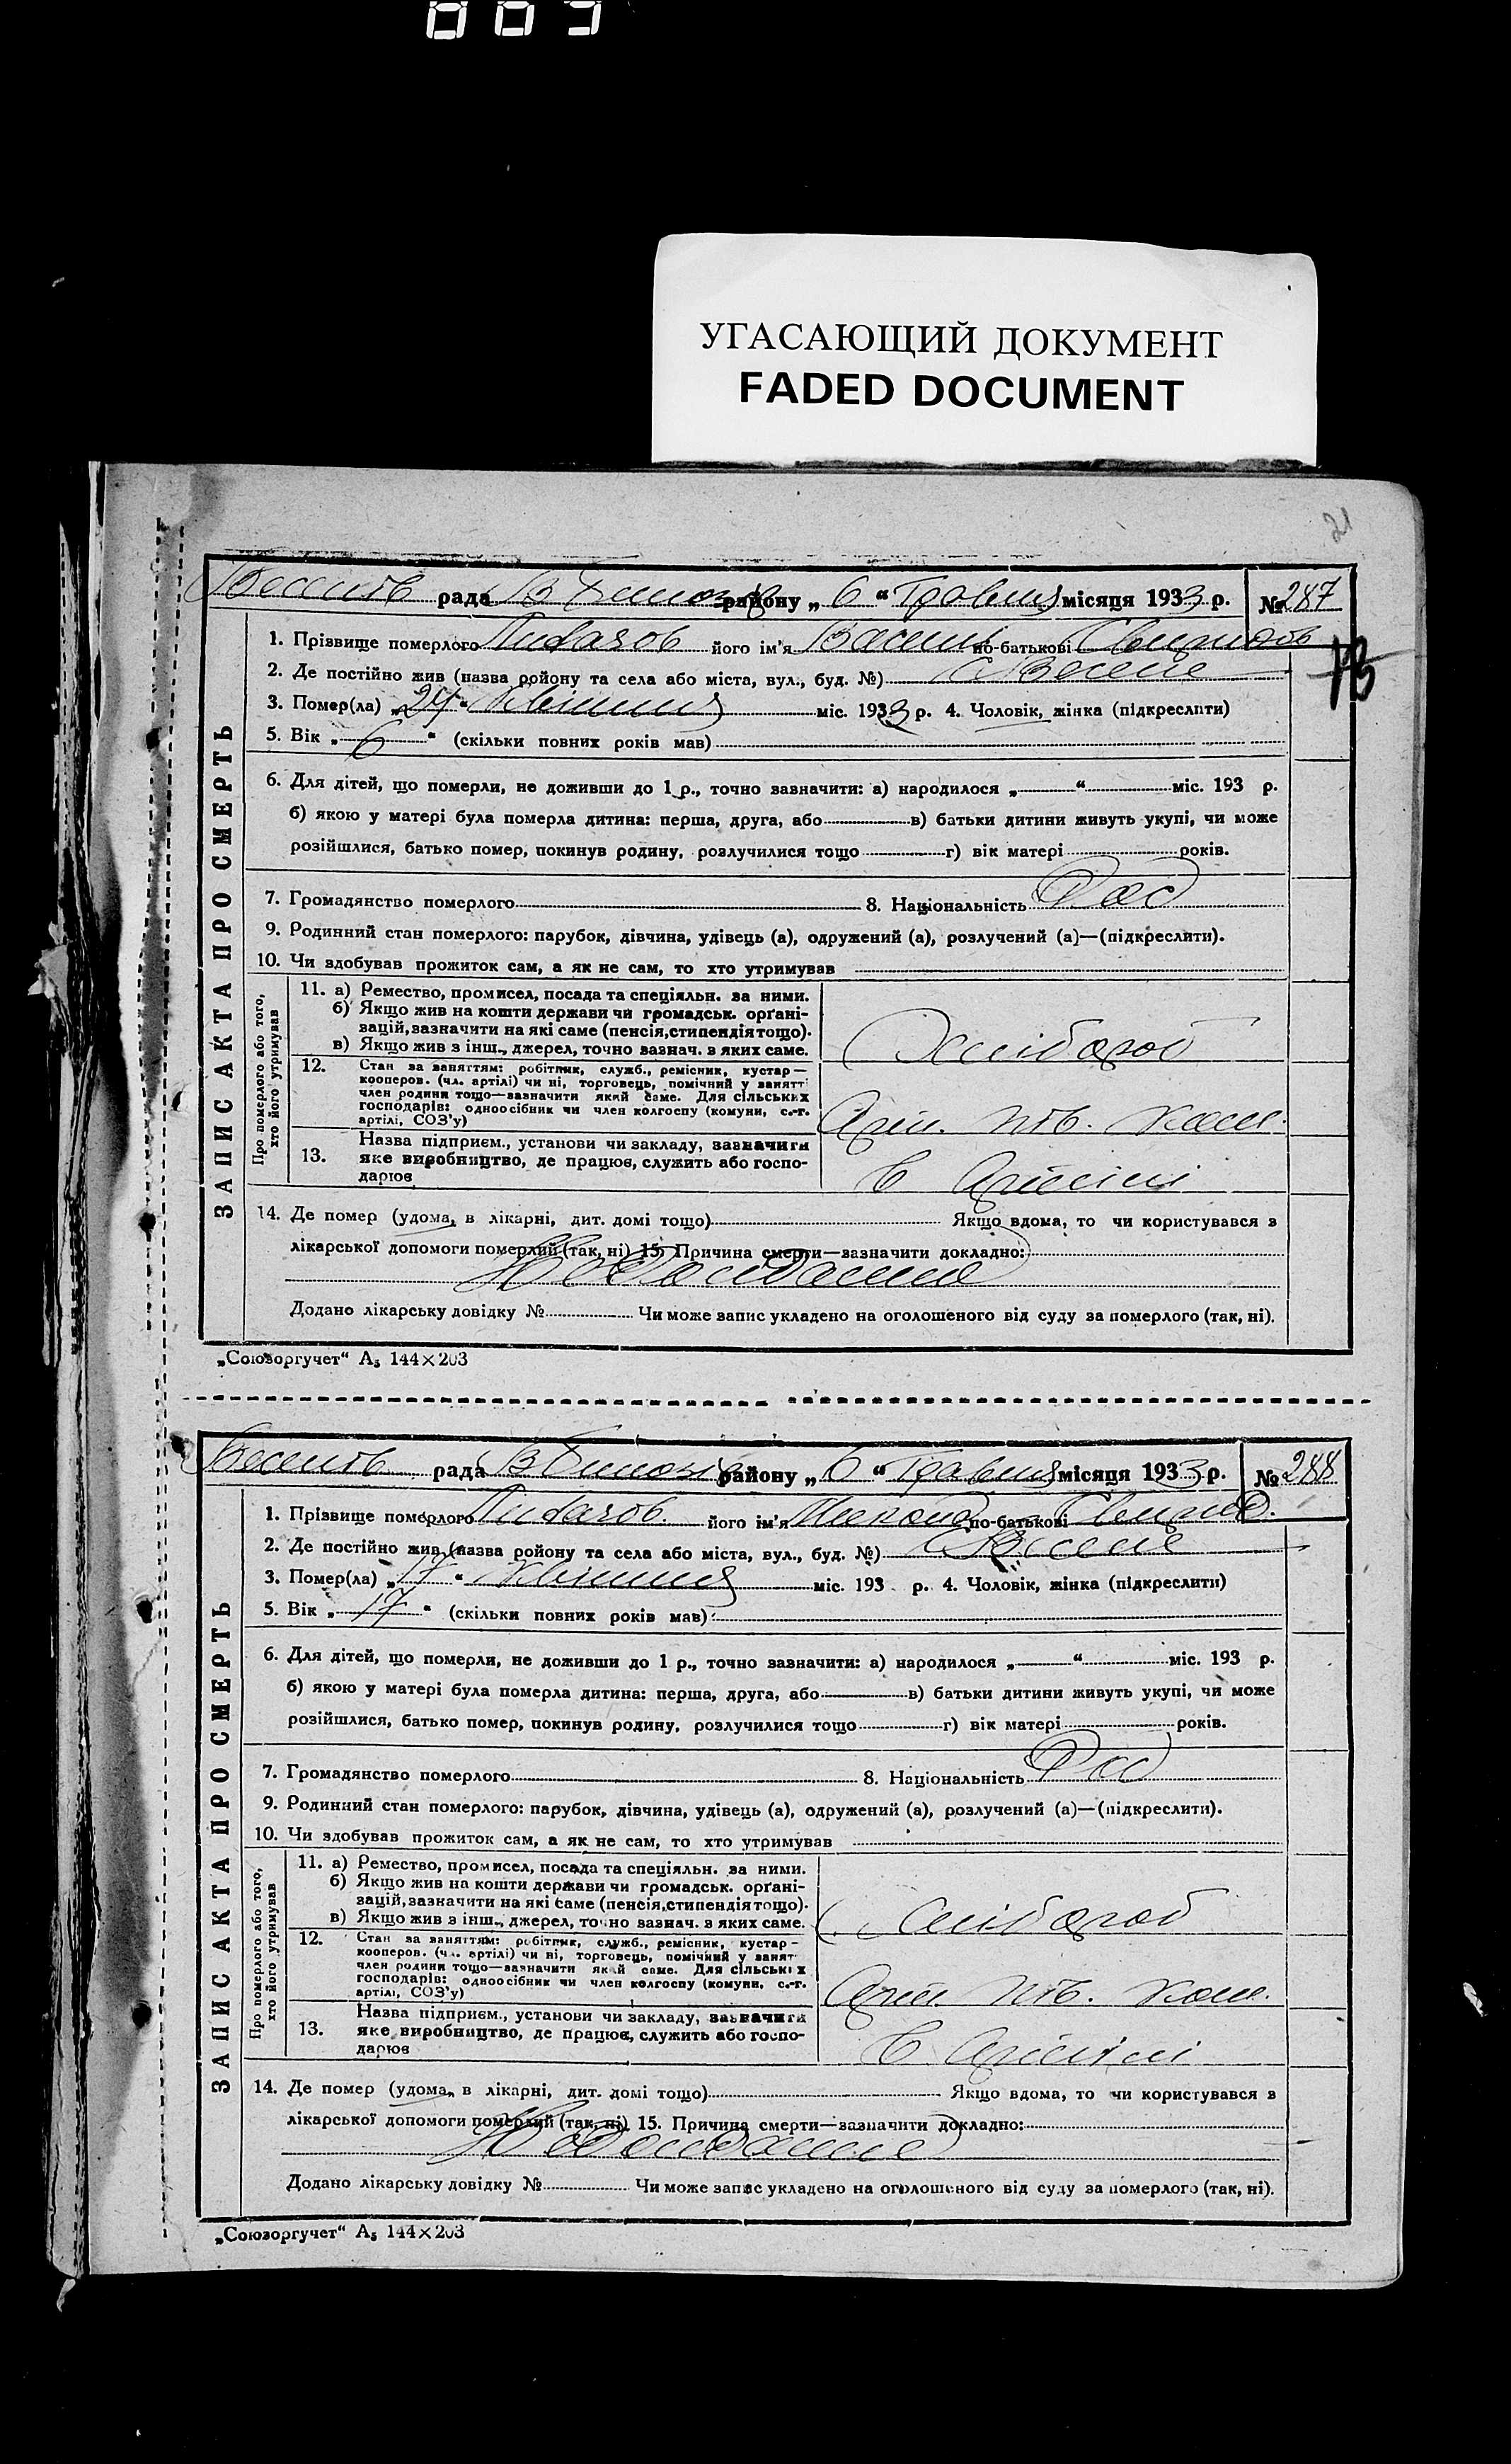 003
УГАСАЮЩИЙ ДОКУМЕНТ
FADED DOCUMENT
21
рада району „ 6 “ Травня місяця 1933 р. № 287
1. Прізвище померлого його ім’я по-батькові
2. Де постійно жив (назва ройону та села або міста, вул., буд. №) с Веселе
3. Помер(ла) „ 24 “ Квітня міс. 1933 р. 4. Чоловік, жінка (підкреслити)
5. Вік „ 6 “ (скільки повних років мав)
6. Для дітей, що померли, не доживши до 1 р., точно зазначити: а) народилося „ “ міс. 193 р.
б) якою у матері була померла дитина: перша, друга, або в) батьки дитини живуть укупі, чи може
розійшлися, батько помер, покинув родину, розлучилися тощо г) вік матері років.
7. Громадянство померлого 8. Національність Рос
9. Родинний стан померлого: парубок, дівчина, удівець (а), одружений (а), розлучений (а)—(підкреслити).
10. Чи здобував прожиток сам, а як не сам, то хто утримував
ЗАПИС АКТА ПРО СМЕРТЬ
Про померлого або того,
хто його утримував
11. а) Ремество, промисел, посада та спеціяльн. за ними.
б) Якщо жив на кошти держави чи громадськ. орґані-
зацій, зазначити на які саме (пенсія, стипендія тощо).
в) Якщо жив з інш., джерел, точно зазнач. з яких саме.
Хлібороб
12. Стан за заняттям: робітник, служб., ремісник, кустар—
кооперов. (чл. артілі) чи ні, торговець, помічний у занятті
член родини тощо—зазначити який саме. Для сільських
господарів: одноосібник чи член колгоспу (комуни, с.-г.
артілі, СОЗ’у)
13. Назва підприєм., установи чи закладу, зазначити
яке виробництво, де працює, служить або госпо-
дарює
В Артілі
14. Де помер (удома, в лікарні, дит. домі тощо) Якщо вдома, то чи користувався з
лікарської допомоги померлий (так, ні) 15. Причина смерти—зазначити докладно:
Додано лікарську довідку № Чи може запис укладено на оголошеного від суду за померлого (так, ні).
„Союзоргучет“ А₅ 144×203
рада району „ 6 “ Травня місяця 1933 р. № 288
1. Прізвище померлого його ім’я по-батькові
2. Де постійно жив (назва ройону та села або міста, вул., буд. №) с Веселе
3. Помер(ла) „ 17 “ Квітня міс. 193 р. 4. Чоловік, жінка (підкреслити)
5. Вік „ 17 “ (скільки повних років мав)
6. Для дітей, що померли, не доживши до 1 р., точно зазначити: а) народилося „ “ міс. 193 р.
б) якою у матері була померла дитина: перша, друга, або в) батьки дитини живуть укупі, чи може
розійшлися, батько помер, покинув родину, розлучилися тощо г) вік матері років.
7. Громадянство померлого 8. Національність Рос
9. Родинний стан померлого: парубок, дівчина, удівець (а), одружений (а), розлучений (а)—(підкреслити).
10. Чи здобував прожиток сам, а як не сам, то хто утримував
ЗАПИС АКТА ПРО СМЕРТЬ
Про померлого або того,
хто його утримував
11. а) Ремество, промисел, посада та спеціяльн. за ними.
б) Якщо жив на кошти держави чи громадськ. орґані-
зацій, зазначити на які саме (пенсія, стипендія тощо).
в) Якщо жив з інш., джерел, точно зазнач. з яких саме.
Хлібороб
12. Стан за заняттям: робітник, служб., ремісник, кустар—
кооперов. (чл. артілі) чи ні, торговець, помічний у занят
член родини тощо—зазначити який саме. Для сільських
господарів: одноосібник чи член колгоспу (комуни, с.-г.
артілі, СОЗ’у)
13. Назва підприєм., установи чи закладу, зазначити
яке виробництво, де працює, служить або госпо-
дарює
В Артілі
14. Де помер (удома, в лікарні, дит. домі тощо) Якщо вдома, то чи користувався з
лікарської допомоги померлий (так, ні) 15. Причина смерти—зазначити докладно:
Додано лікарську довідку № Чи може запис укладено на оголошеного від суду за померлого (так, ні).
„Союзоргучет“ А₅ 144×203